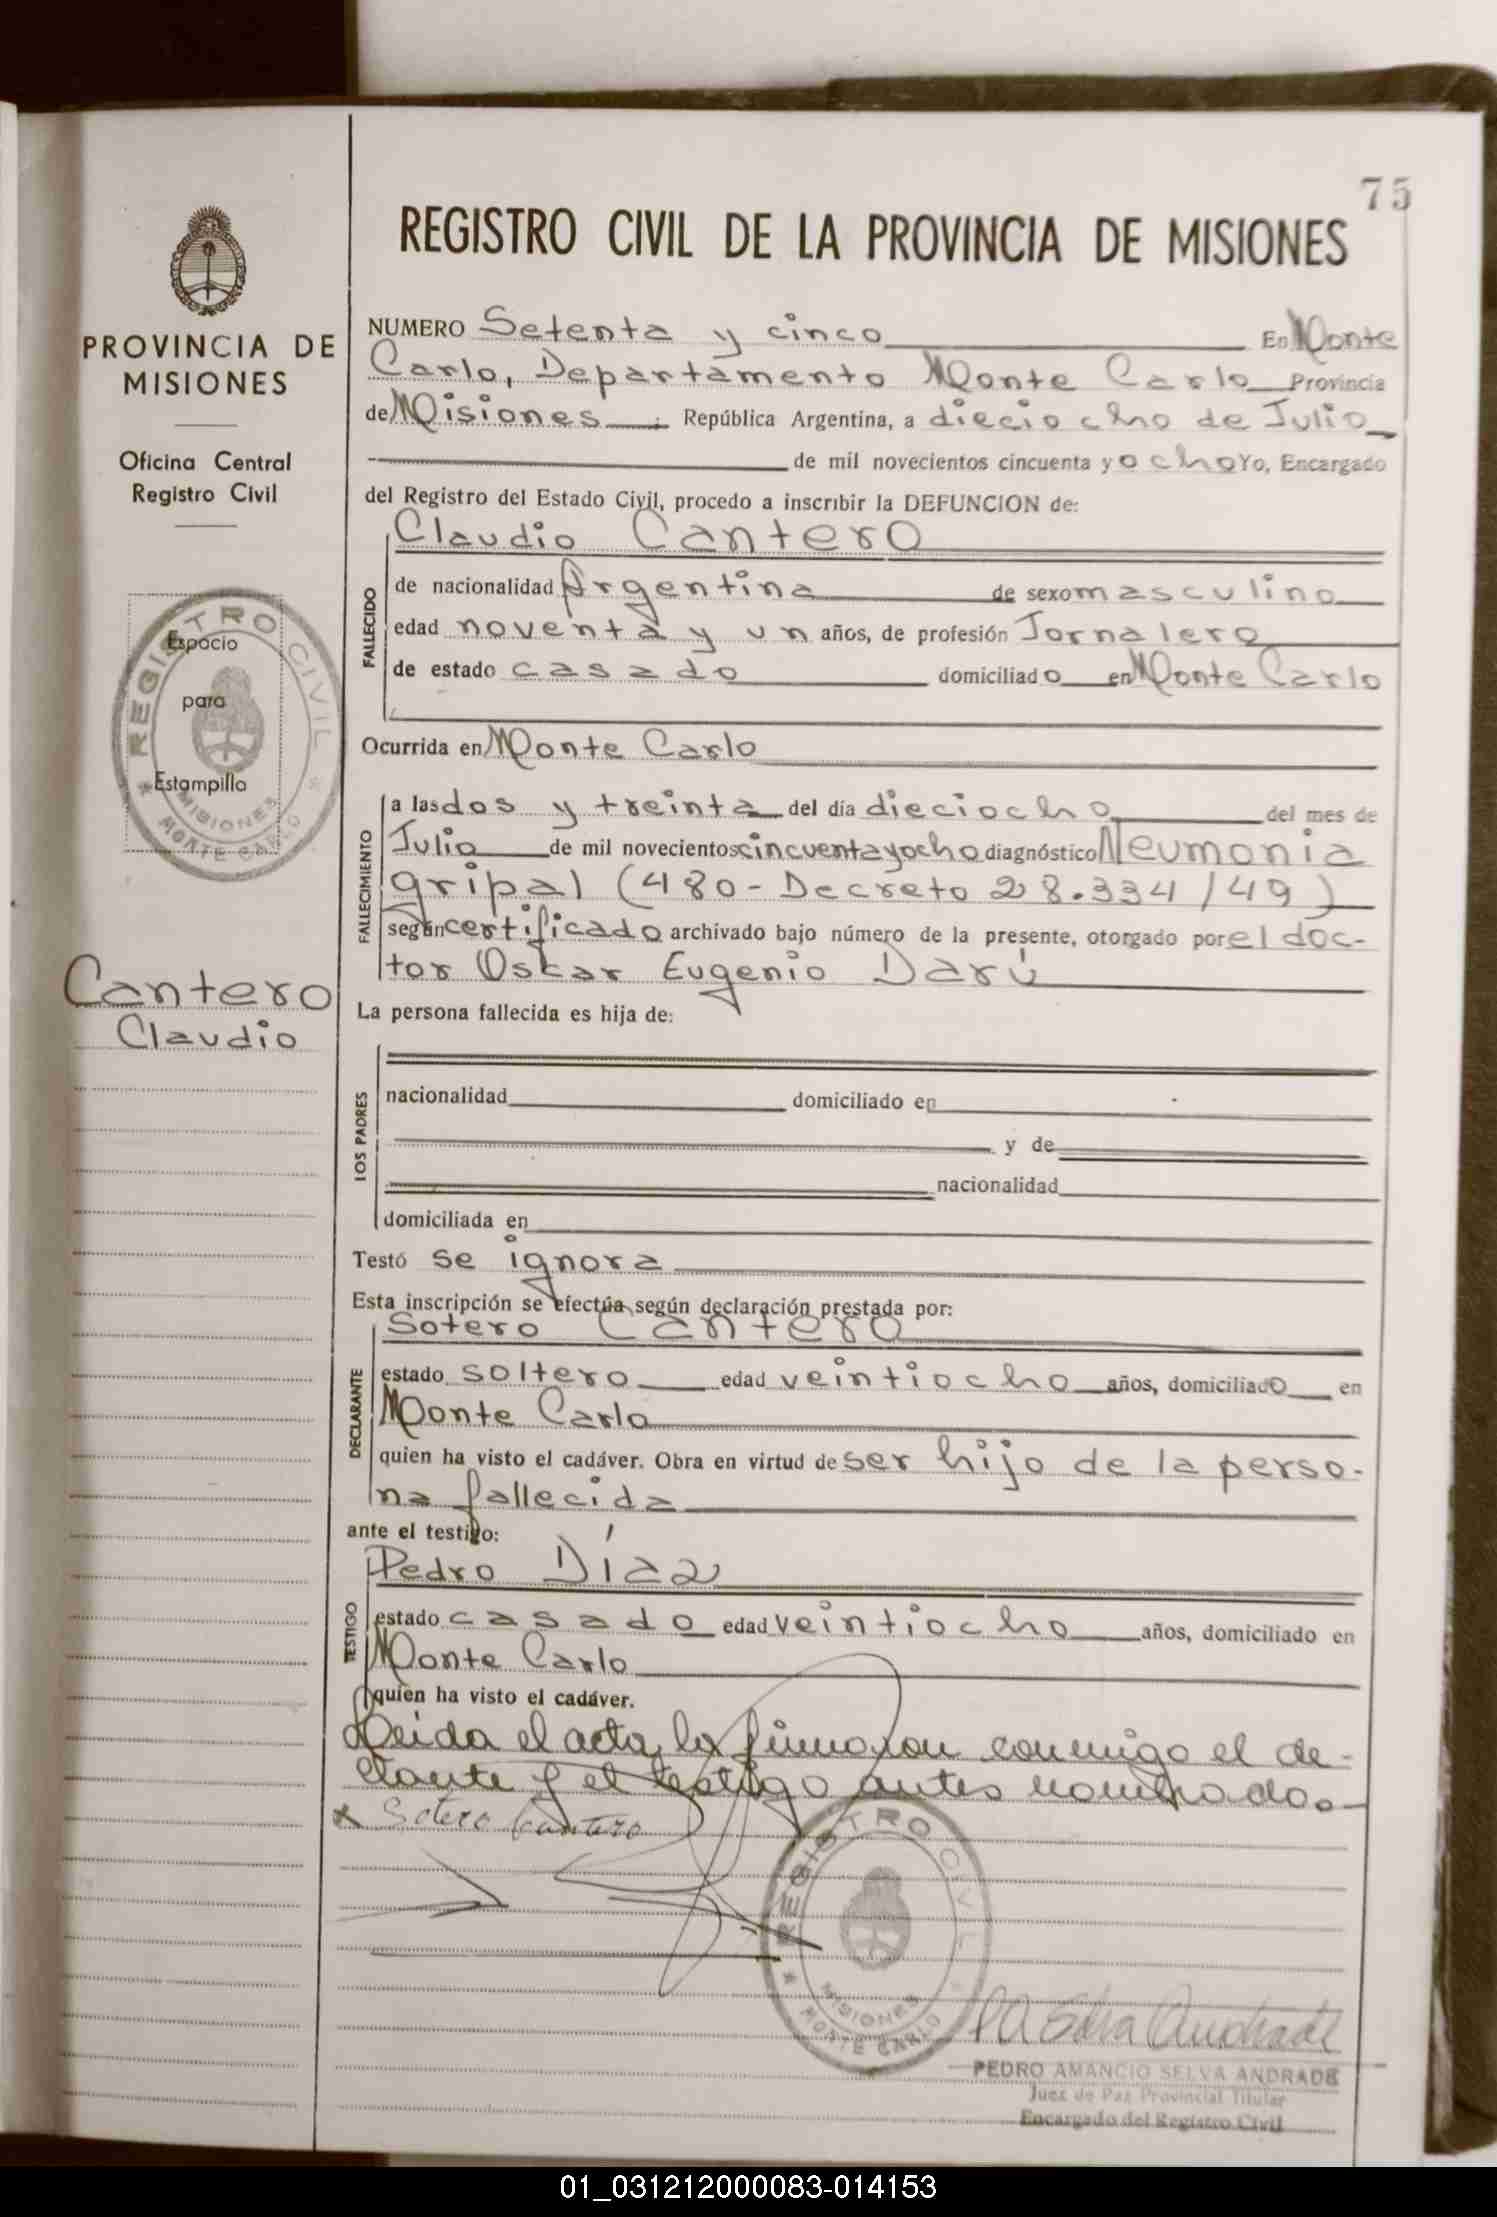 75
REGISTRO CIVIL DE LA PROVINCIA DE MISIONES
PROVINCIA DE
MISIONES
Oficina Central
Registro Civil
REGISTRO CIVIL
Espacio
para
Estampilla
MISIONES
MONTE CARLO
Cantero
Claudio
NUMERO Setenta y cinco En Monte
Carlo, Departamento Monte Carlo Provincia
de Misiones ; República Argentina, a dieciocho de Julio
de mil novecientos cincuenta y ocho Yo, Encargado
del Registro del Estado Civil, procedo a inscribir la DEFUNCION de:
FALLECIDO
Claudio Cantero
de nacionalidad Argentina de sexo masculino
edad noventa y un años, de profesión Jornalero
de estado casado domiciliado en Monte Carlo
Ocurrida en Monte Carlo
FALLECIMIENTO
a las dos y treinta del día dieciocho del mes de
Julio de mil novecientos cincuenta y ocho diagnóstico Neumonia
gripal (480 - Decreto 28.334/49)
según certificado archivado bajo número de la presente, otorgado por el doc-
tor Oskar Eugenio Darú
La persona fallecida es hija de:
LOS PADRES
nacionalidad domiciliado en
y de
nacionalidad
domiciliada en
Testó se ignora
Esta inscripción se efectúa según declaración prestada por:
DECLARANTE
Sotero Cantero
estado soltero edad veintiocho años, domiciliado en
Monte Carlo
quien ha visto el cadáver. Obra en virtud de ser hijo de la perso-
na fallecida
ante el testigo:
TESTIGO
Pedro Díaz
estado casado edad veintiocho años, domiciliado en
Monte Carlo
quien ha visto el cadáver.
Leida el acta, la firmaron conmigo el de-
clarante y el testigo antes nombrados.
x Sotero Cantero
REGISTRO CIVIL
MISIONES
MONTE CARLO
PA Selva Andrade
PEDRO AMANCIO SELVA ANDRADE
Juez de Paz Provincial Titular
Encargado del Registro Civil
01_031212000083-014153